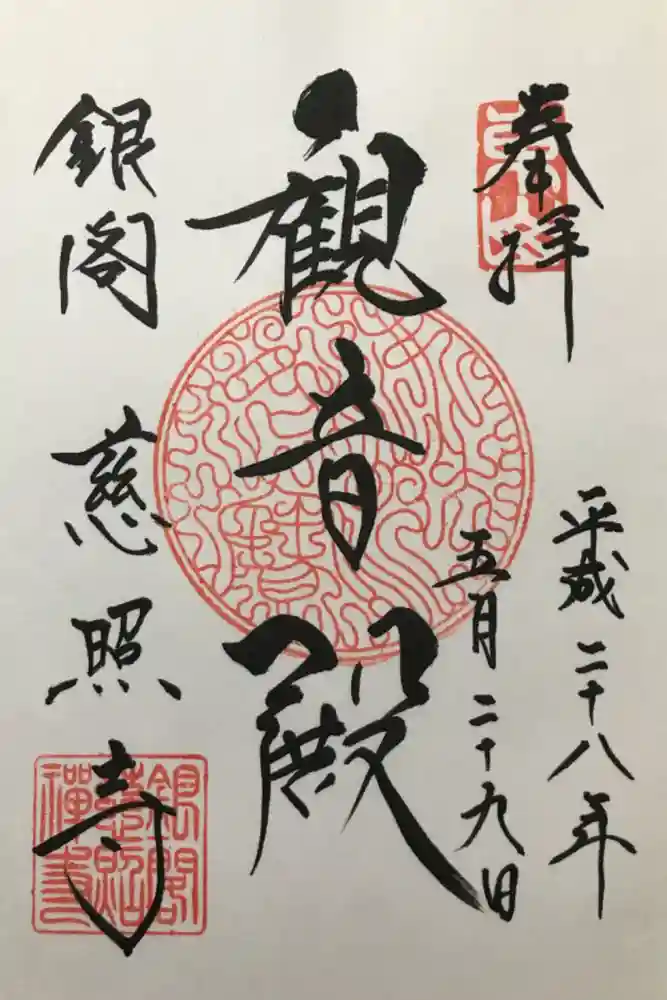 奉拝
平成二十八年
五月二十九日
観音殿
銀閣 慈照寺
銀閣
慈照
禅寺